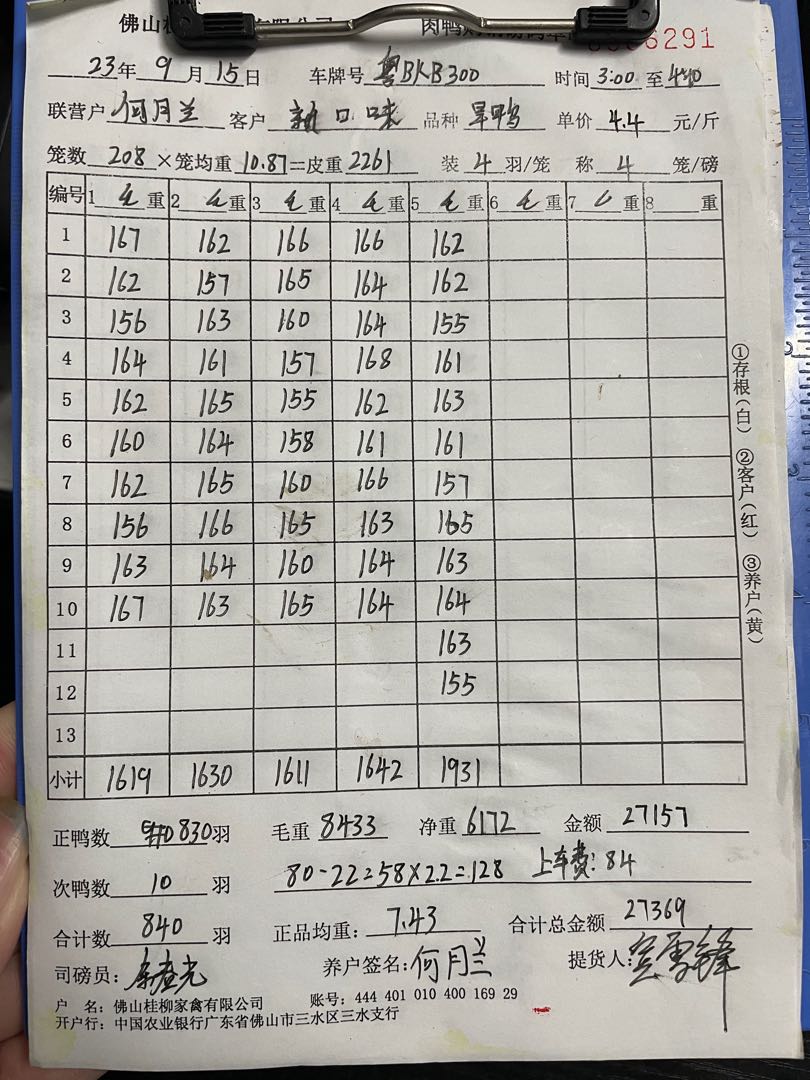 佛山桂 肉鸭 6291
23年 9月 15日 车牌号 粤BKB300 时间 3:00 至 4:40
联营户 何月兰 客户 新口味 品种 旱鸭 单价 4.4 元/斤
笼数 208 ×笼均重 10.87=皮重 2261 装 4 羽/笼 称 4 笼/磅
编号 1 毛重 2 毛重 3 毛重 4 毛重 5 毛重 6 毛重 7 重 8 重
1 167 162 166 166 162
2 162 157 165 164 162
3 156 163 160 164 155
4 164 161 157 168 161
5 162 165 155 162 163
6 160 164 158 161 161
7 162 165 160 166 157
8 156 166 165 163 165
9 163 164 160 164 163
10 167 163 165 164 164
11 163
12 155
13
小计 1619 1630 1611 1642 1931
正鸭数 830羽 毛重 8433 净重 6172 金额 27157
次鸭数 10 羽 80-22=58×2.2=128 上车费:84
合计数 840 羽 正品均重: 7.43 合计总金额 27369
司磅员: 养户签名:何月兰 提货人:
户 名:佛山桂柳家禽有限公司 账号:444 401 010 400 169 29
开户行:中国农业银行广东省佛山市三水区三水支行
①存根(白) ②客户(红) ③养户(黄)